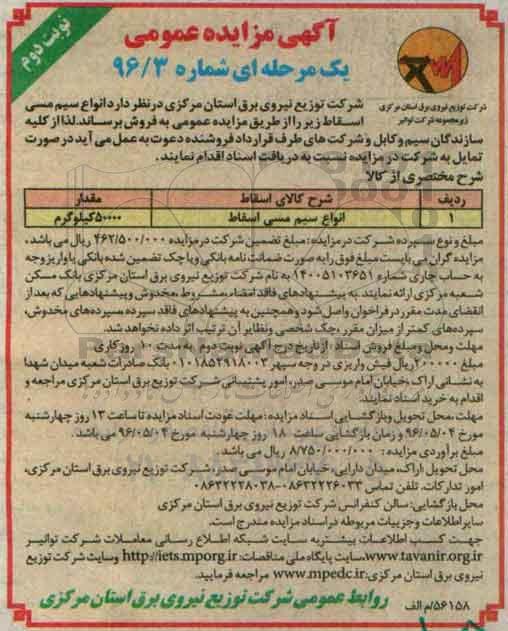 نوبت دوم
آگهی مزایده عمومی
یک مرحله ای شماره ۹۶/۳
شرکت توزیع نیروی برق استان مرکزی
زیرمجموعه شرکت توانیر
شرکت توزیع نیروی برق استان مرکزی در نظر دارد انواع سیم مسی
اسقاط زیر را از طریق مزایده عمومی به فروش برساند. لذا از کلیه
سازندگان سیم و کابل و شرکت های طرف قرارداد فروشنده دعوت به عمل می آید در صورت
تمایل به شرکت در مزایده نسبت به دریافت اسناد اقدام نمایند.
شرح مختصری از کالا
ردیف شرح کالای اسقاط مقدار
۱ انواع سیم مسی اسقاط ۵۰۰۰۰کیلوگرم
مبلغ و نوع سپرده شرکت در مزایده: مبلغ تضمین شرکت در مزایده ۴۶۲/۵۰۰/۰۰۰ ریال می باشد،
مزایده گران می بایست مبلغ فوق را به صورت ضمانت نامه بانکی و یا چک تضمین شده بانکی یا واریز وجه
به حساب جاری شماره ۱۴۰۰۵۱۰۳۶۵۱ به نام شرکت توزیع نیروی برق استان مرکزی بانک مسکن
شعبه مرکزی ارائه نمایند. به پیشنهادهای فاقد امضاء، مشروط، مخدوش و پیشنهادهایی که بعد از
انقضای مدت مقرر در فراخوان واصل شود و همچنین به پیشنهادهای فاقد سپرده، سپرده‌های مخدوش،
سپرده‌های کمتر از میزان مقرر، چک شخصی ونظایر آن ترتیب اثر داده نخواهد شد.
مهلت ومحل ومبلغ فروش اسناد: از تاریخ درج آگهی نوبت دوم به مدت ۱۰ روز کاری
مبلغ ۲۰۰۰۰۰ریال فیش واریزی در وجه سپهر ۰۱۰۱۸۵۲۹۱۸۰۰۳ بانک صادرات شعبه میدان شهدا
به نشانی اراک، خیابان امام موسی صدر، امور پشتیبانی شرکت توزیع نیروی برق استان مرکزی مراجعه و
اقدام به خرید اسناد نمایند.
مهلت، محل تحویل وبازگشایی اسناد مزایده: مهلت عودت اسناد مزایده تا ساعت ۱۳ روز چهارشنبه
مورخ ۹۶/۰۵/۰۴ و زمان بازگشایی ساعت ۱۸ روز چهارشنبه مورخ ۹۶/۰۵/۰۴ می باشد.
مبلغ برآوردی مزایده: ۸/۷۵۰/۰۰۰/۰۰۰ ریال می باشد.
محل تحویل: اراک، میدان دارایی، خیابان امام موسی صدر، شرکت توزیع نیروی برق استان مرکزی،
امور تدارکات. تلفن تماس ۰۸۶۳۲۲۲۶۰۳۳-۰۸۶۳۲۲۲۸۰۳۸
محل بازگشایی: سالن کنفرانس شرکت توزیع نیروی برق استان مرکزی
سایر اطلاعات و جزییات مربوطه در اسناد مزایده مندرج است.
جهت کسب اطلاعات بیشتر به سایت شبکه اطلاع رسانی معاملات شرکت توانیر
www.tavanir.org.ir، سایت پایگاه ملی مناقصات: http://iets.mporg.ir وسایت شرکت توزیع
نیروی برق استان مرکزی: www.mpedc.ir مراجعه فرمایید.
۵۶۱۵۸/م الف
روابط عمومی شرکت توزیع نیروی برق استان مرکزی